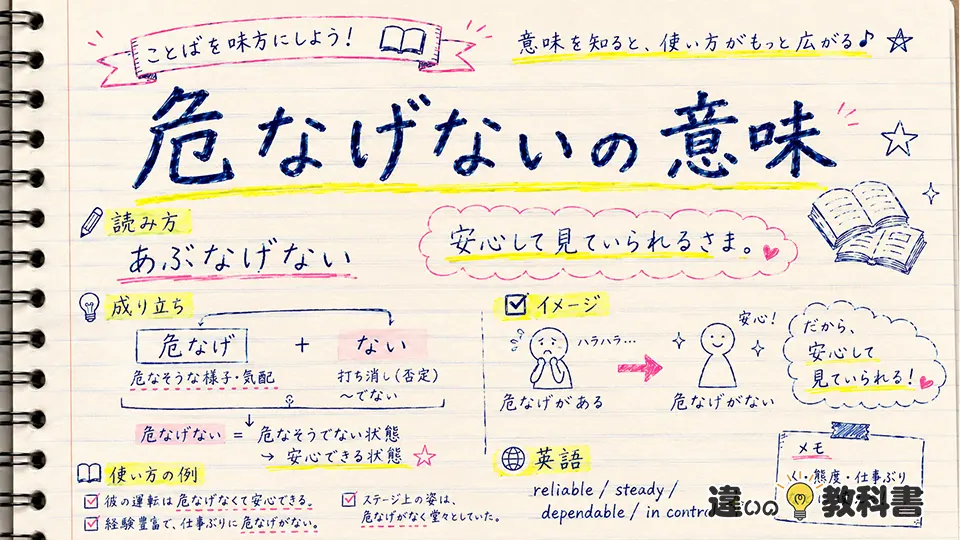 ことばを味方にしよう!
意味を知ると、使い方がもっと広がる♪
危なげないの意味
読み方
あぶなげない
安心して見ていられるさま。
成り立ち
危なげ + ない
危なそうな様子・気配
打ち消し(否定)
〜でない
危なげない = 危なそうでない状態
→ 安心できる状態
イメージ
ハラハラ…
危なげがある
安心!
危なげがない
だから、
安心して
見ていられる!
使い方の例
彼の運転は危なげなくて安心できる。
経験豊富で、仕事ぶりに危なげがない。
ステージ上の姿は、
危なげがなく堂々としていた。
英語
reliable / steady /
dependable / in contro
メモ
態度・仕事ぶり
違いの教科書